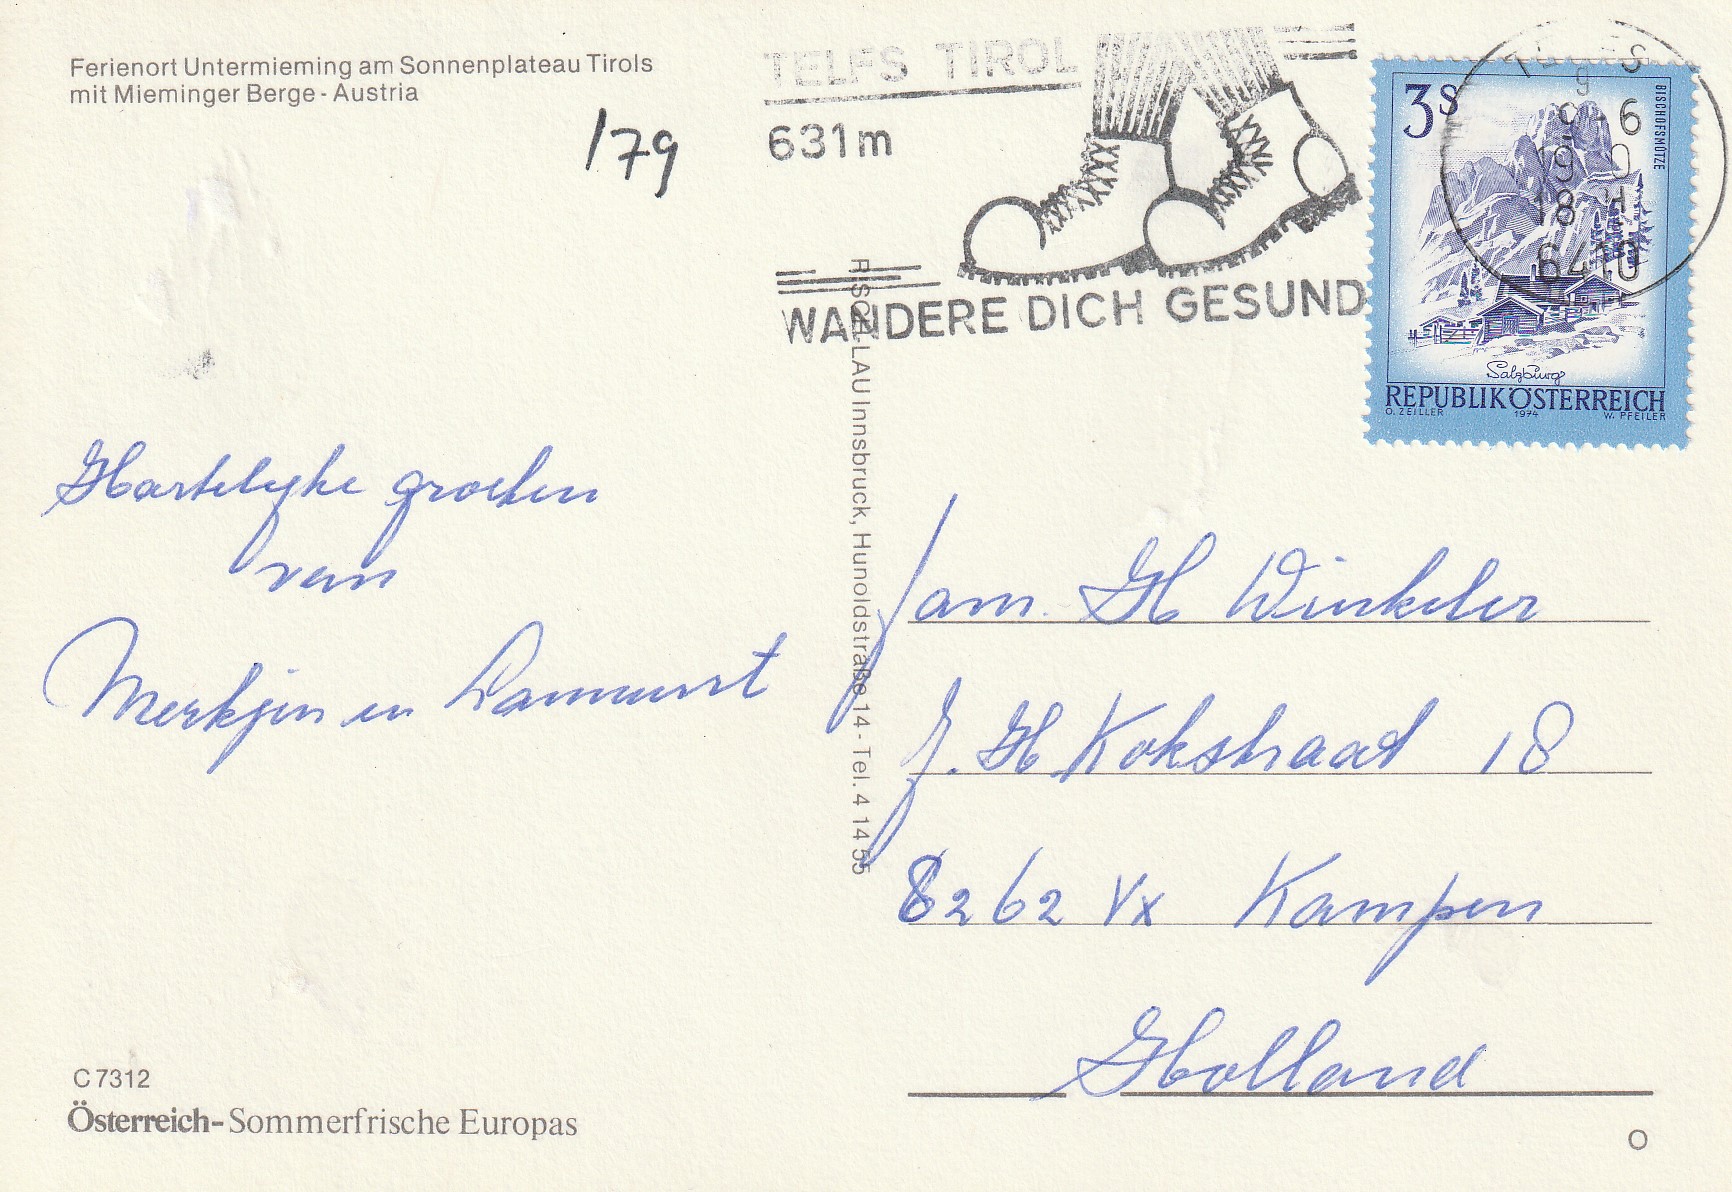 Ferienort Untermieming am Sonnenplateau Tirols
mit Mieminger Berge - Austria
/79
TELFS TIROL
631m
WANDERE DICH GESUND
6410
3 S
BISCHOFSMÜTZE
Salzburg
REPUBLIK ÖSTERREICH
O. ZEILLER 1974 W. PFEILER
Hartelijke groeten
van
Merkjen en Lammert
LAU Innsbruck, Hunoldstraße 14 - Tel. 4 14 55
Fam. H Winkeler
J. H Kokstraat 18
8262 VX Kampen
Holland
C 7312
Österreich - Sommerfrische Europas
O